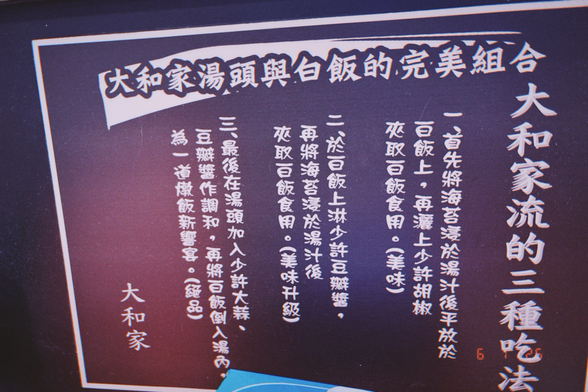 大和家湯頭與白飯的完美組合
大和家流的三種吃法
一、首先將海苔浸於湯汁後平放於
白飯上，再灑上少許胡椒
夾取白飯食用。(美味)
二、於白飯上淋少許豆瓣醬，
再將海苔浸於湯汁後
夾取白飯食用。(美味升級)
三、最後在湯頭加入少許大蒜、
豆瓣醬作調和，再將白飯倒入湯內。
為一道燉飯新饗宴。(絕品)
大和家